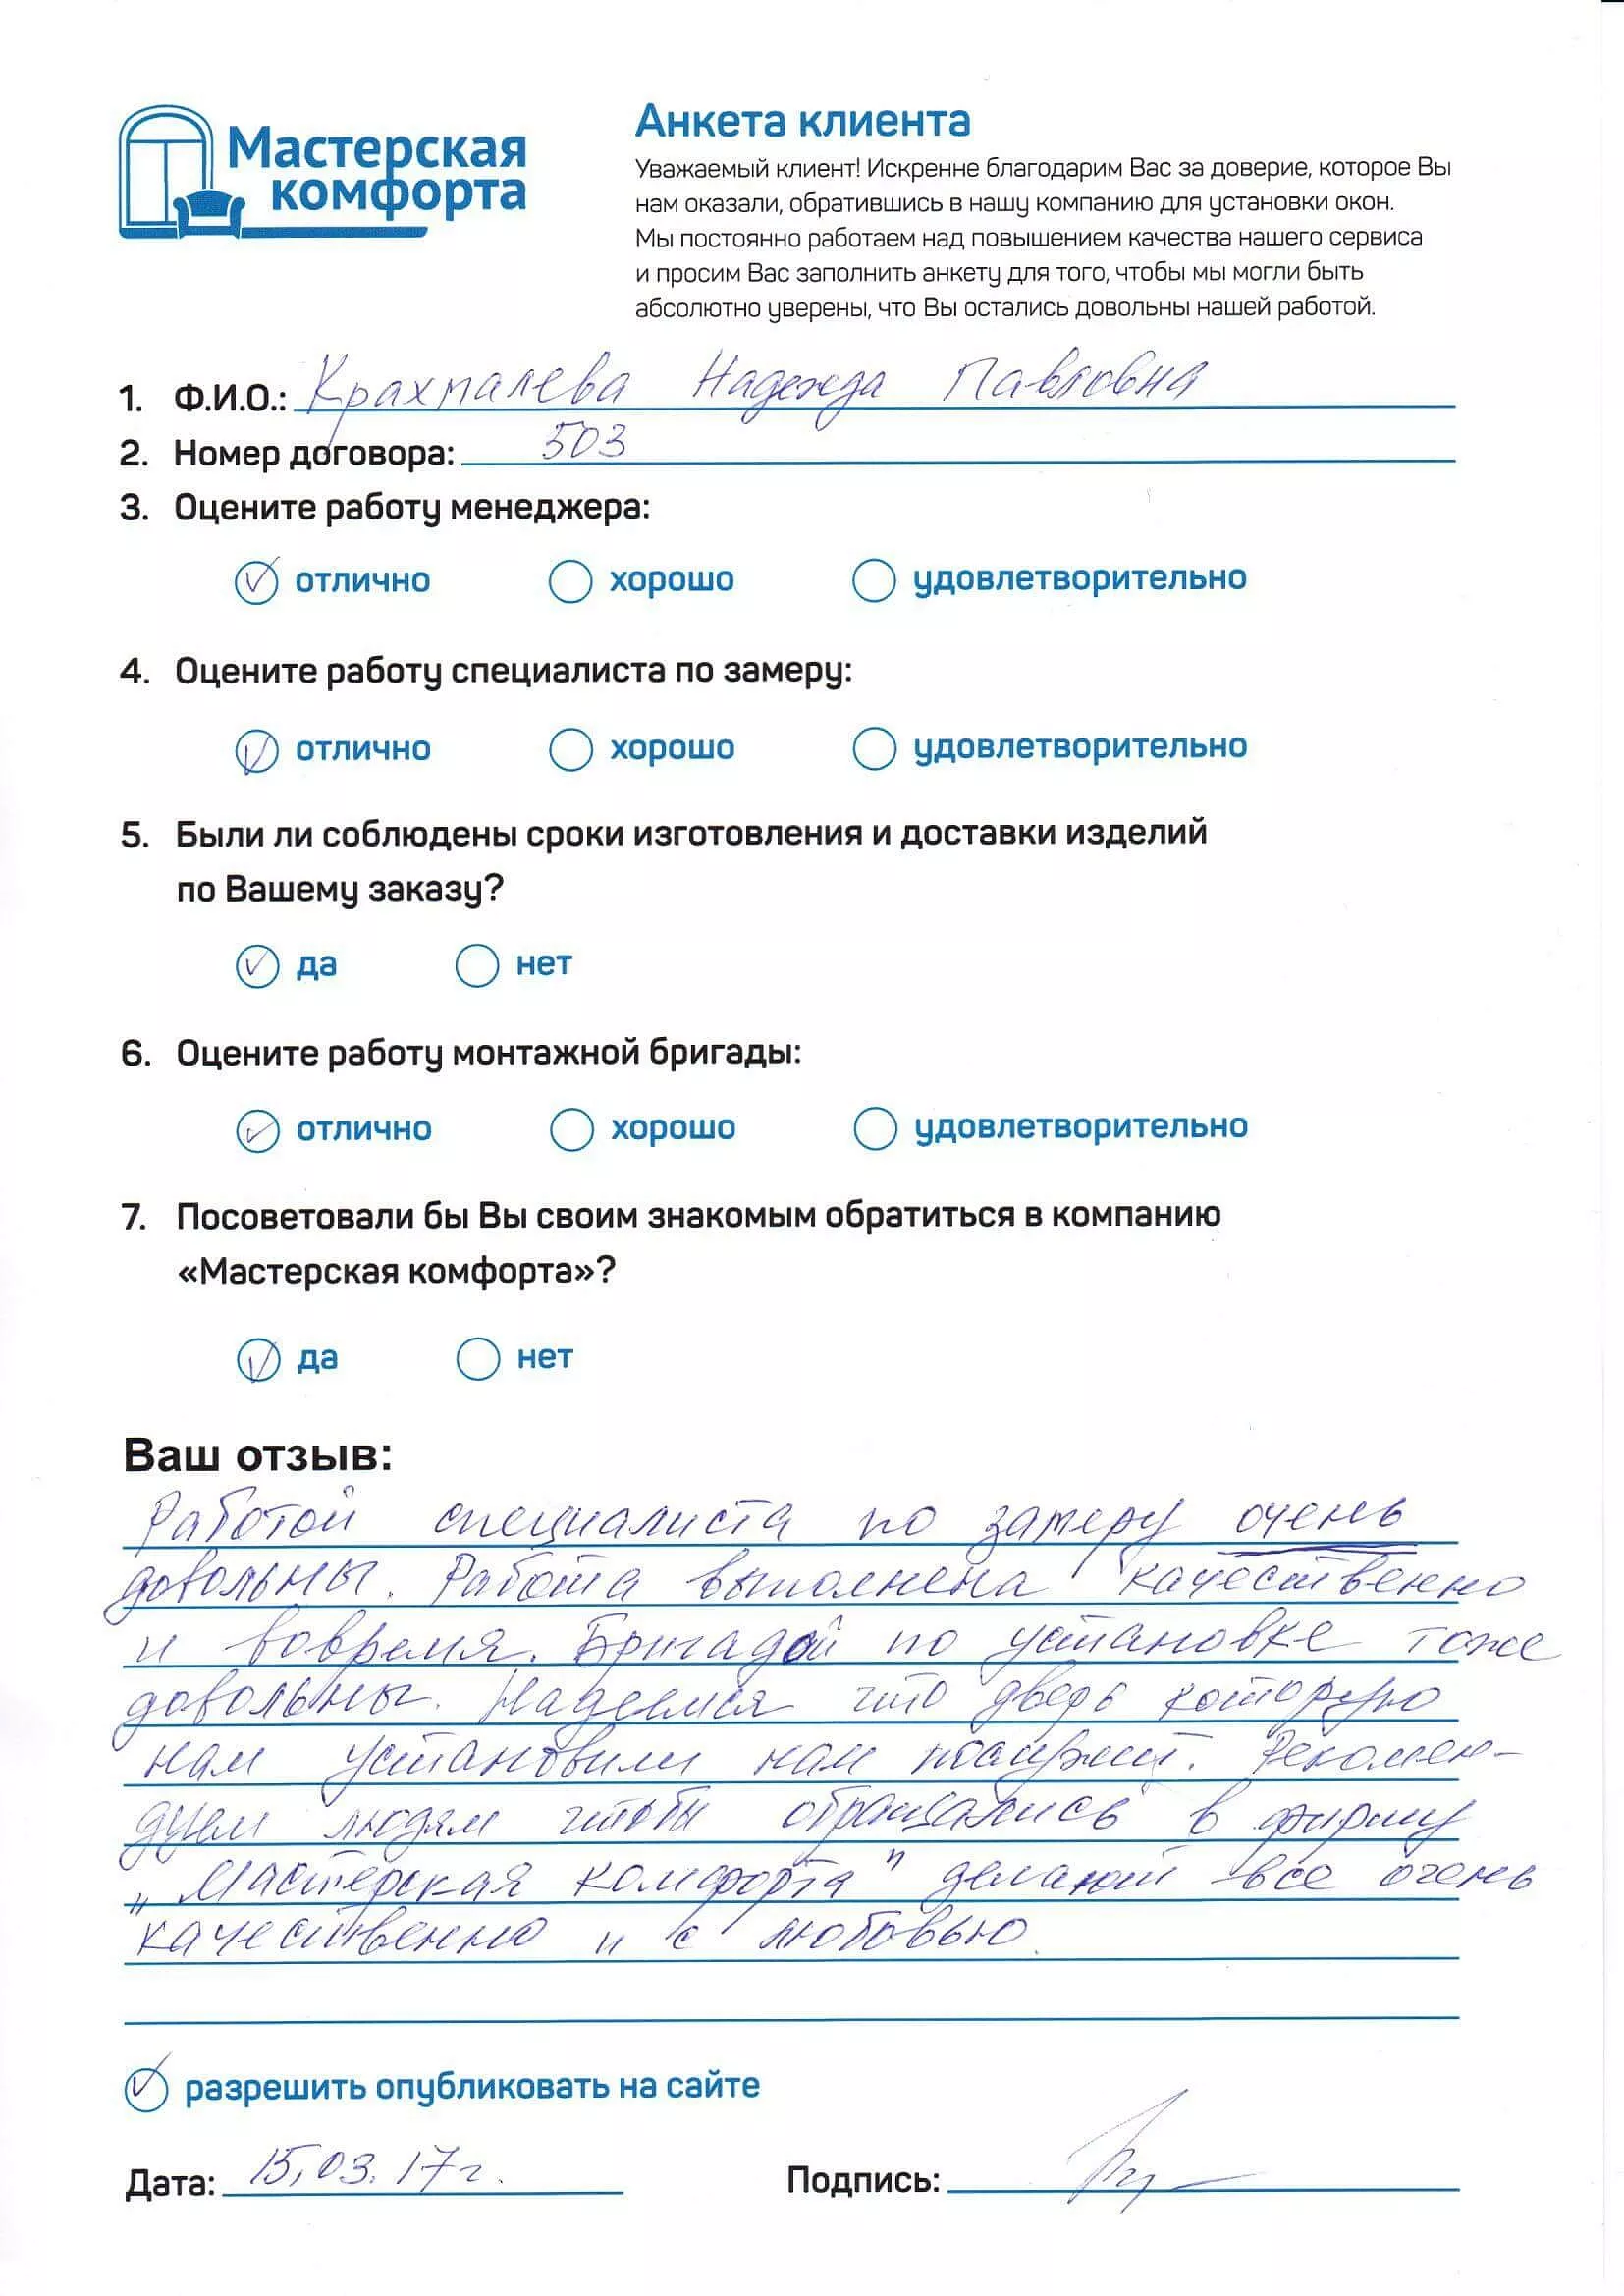 Мастерская
комфорта
Анкета клиента
Уважаемый клиент! Искренне благодарим Вас за доверие, которое Вы
нам оказали, обратившись в нашу компанию для установки окон.
Мы постоянно работаем над повышением качества нашего сервиса
и просим Вас заполнить анкету для того, чтобы мы могли быть
абсолютно уверены, что Вы остались довольны нашей работой.
1. Ф.И.О.: Крахмалева Надежда Павловна
2. Номер договора: 503
3. Оцените работу менеджера:
отлично хорошо удовлетворительно
4. Оцените работу специалиста по замеру:
отлично хорошо удовлетворительно
5. Были ли соблюдены сроки изготовления и доставки изделий
по Вашему заказу?
да нет
6. Оцените работу монтажной бригады:
отлично хорошо удовлетворительно
7. Посоветовали бы Вы своим знакомым обратиться в компанию
«Мастерская комфорта»?
да нет
Ваш отзыв:
Работой специалиста по замеру очень
довольны. Работа выполнена качественно
и вовремя. Бригадой по установке тоже
довольны. Надеемся что дверь которую
нам установили нам послужит. Рекомен-
дуем людям чтобы обращались в фирму
„Мастерская комфорта" делают все очень
качественно и с любовью.
разрешить опубликовать на сайте
Дата: 15.03.17г. Подпись: